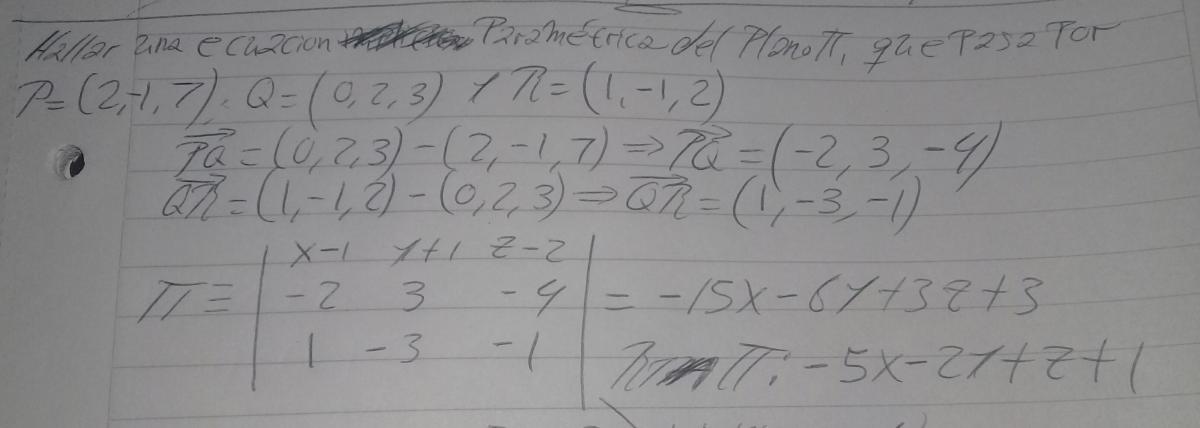 Hallar una ecuacion Paramétrica del Plano π, que Pasa Por
P=(2,-1,7), Q=(0,2,3) y R=(1,-1,2)
PQ=(0,2,3)-(2,-1,7)⇒PQ=(-2,3,-4)
QR=(1,-1,2)-(0,2,3)⇒QR=(1,-3,-1)
x-1 y+1 z-2
π≡ | -2 3 -4 | = -15x-6y+3z+3
1 -3 -1 π: -5x-2y+z+1